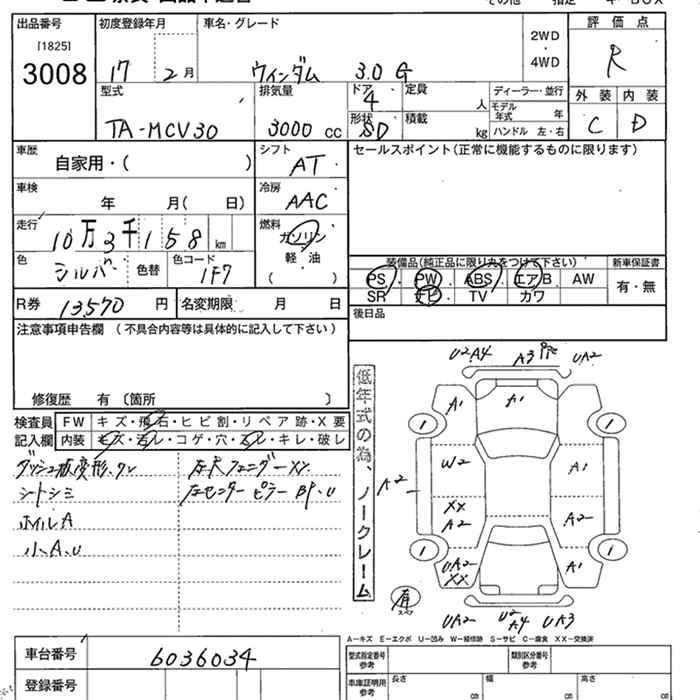 出品番号
[1825]
3008
初度登録年月
17 2月
車名・グレード
ウィンダム 3.0 G
2WD
・
4WD
評価点
R
型式
TA-MCV30
排気量
3000 cc
ドア
4
形状
SD
定員
人
積載
kg
ディーラー・並行
モデル
年式
年
ハンドル 左・右
外装 内装
C D
車歴
自家用・( )
シフト
AT
セールスポイント(正常に機能するものに限ります)
車検
年 月( 日)
冷房
AAC
走行
10万3千158 km
燃料
ガソリン
軽・油
( )
色
シルバー 色替
色コード
1F7
装備品(純正品に限り丸をつけて下さい)
PS・PW・ABS・エアB AW
SR ナビ・TV カワ
新車保証書
有・無
R券 13,570 円
名変期限 月 日
後日品
注意事項申告欄 (不具合内容等は具体的に記入して下さい)
修復歴 有〔箇所 〕
検査員
記入欄
FW キズ・飛石・ヒビ割・リペア跡・X要
内装 キズ・汚レ・コゲ・穴・スレ・キレ・破レ
シートシミ
ホイルA
小A、U
左センターピラーBP、U
低年式の為、ノークレーム
U2A4 A3 UA2
A1 A1
1 1
W2 A1
A2
XX
A2 A2
1 1
UA2
XX A1
有
スペア
UA2 U2
A4 UA3
A-キズ E-エクボ U-凹み W-補修跡 S-サビ C-腐食 XX-交換済
車台番号 6036034
登録番号
型式指定番号
参考
類別区分番号
参考
車庫証明用
参考
長さ 幅 高さ